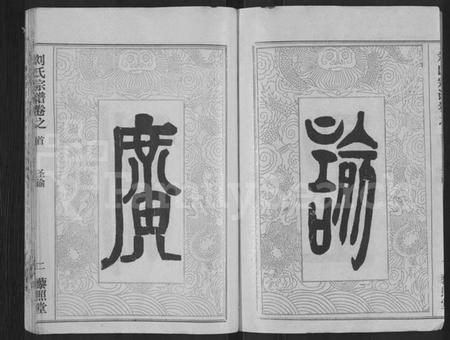 諭
廣
刘氏宗谱卷之首
圣諭
二
藜照堂
FamilySearch